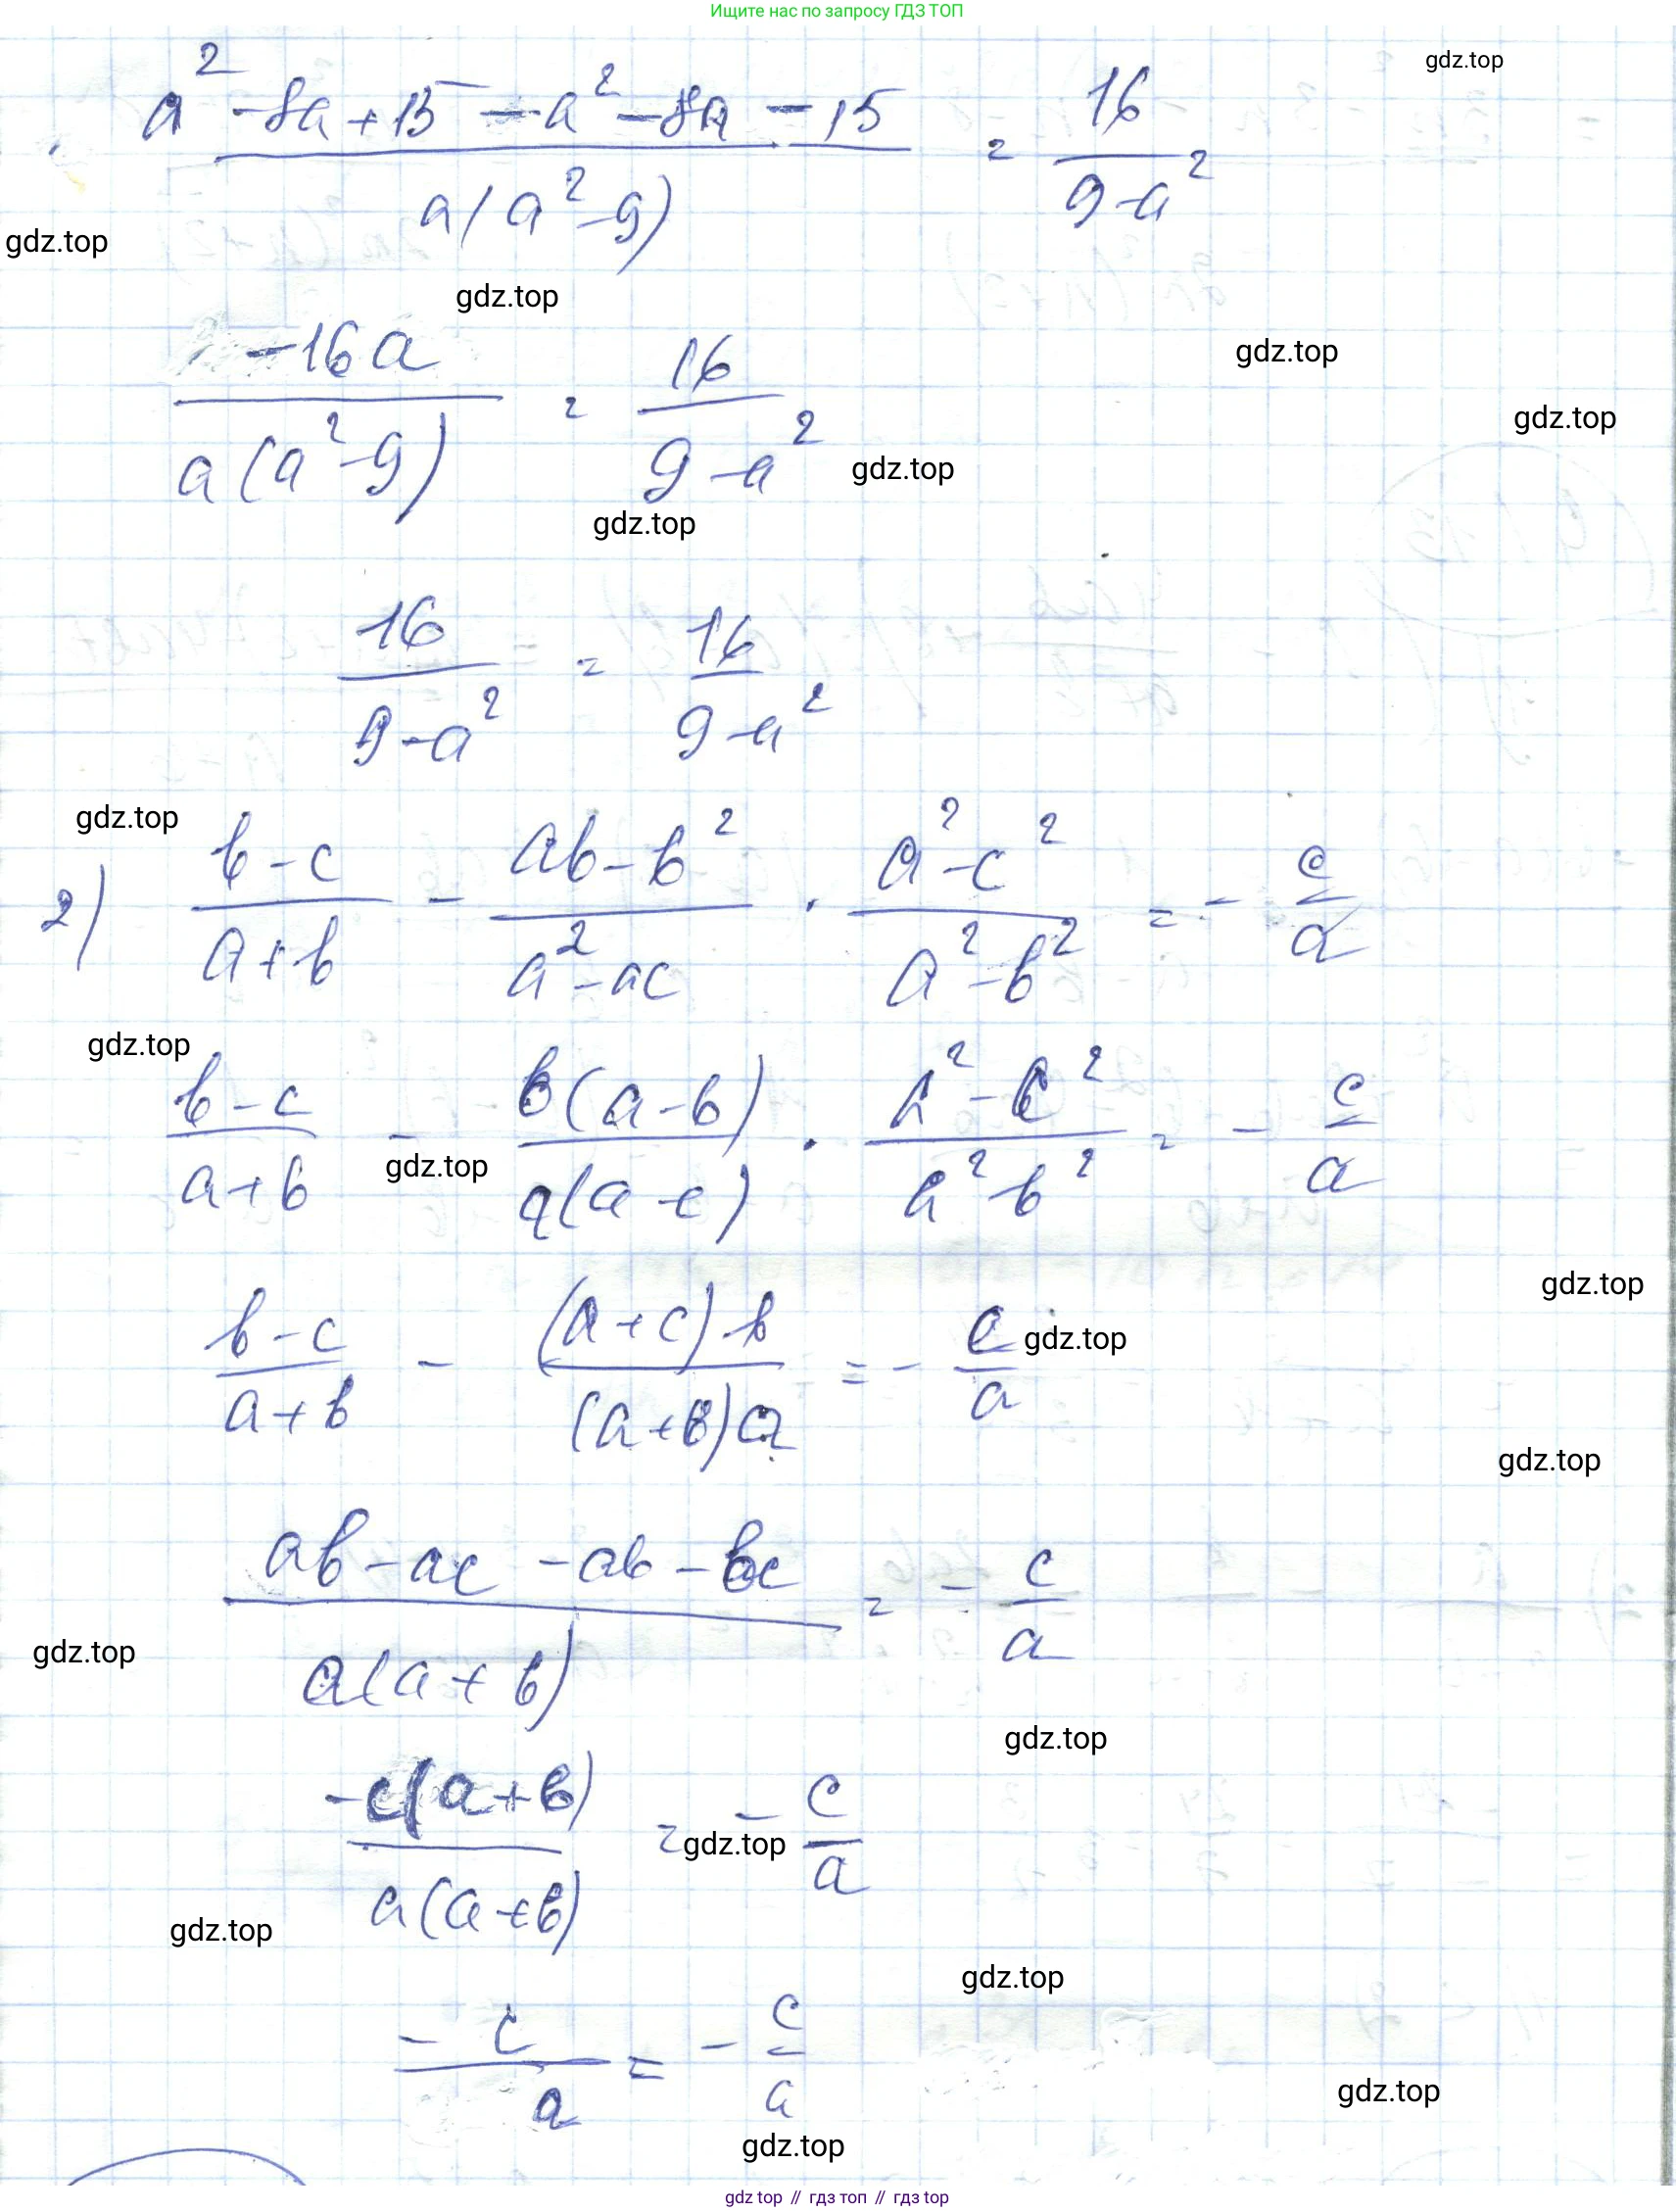 Ищите нас по запросу ГДЗ ТОП
gdz.top
(a² - 8a + 15 - a² - 8a - 15) / (a(a² - 9)) = 16 / (9 - a²)
gdz.top
gdz.top
-16a / (a(a² - 9)) = 16 / (9 - a²)
gdz.top
gdz.top
gdz.top
gdz.top
16 / (9 - a²) = 16 / (9 - a²)
gdz.top
2) (b - c) / (a + b) - (ab - b²) / (a² - ac) · (a² - c²) / (a² - b²) = - c / a
gdz.top
(b - c) / (a + b) - b(a - b) / (a(a - c)) · (a² - c²) / (a² - b²) = - c / a
gdz.top
gdz.top
(b - c) / (a + b) - (a + c) b / ((a + b) a) = - c / a
gdz.top
gdz.top
(ab - ac - ab - bc) / (a(a + b)) = - c / a
gdz.top
gdz.top
-c(a + b) / (a(a + b)) = - c / a
gdz.top
gdz.top
gdz.top
- c / a = - c / a
gdz.top
gdz.top
gdz top // гдз топ // гдз top